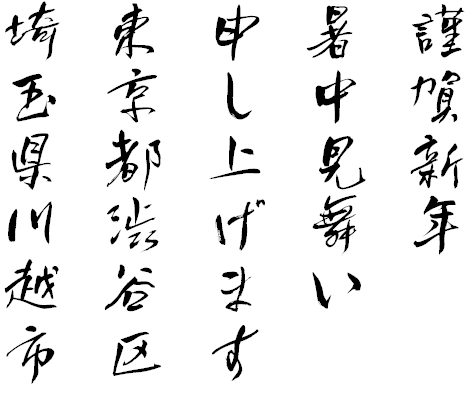 謹賀新年
暑中見舞い
申し上げます
東京都渋谷区
埼玉県川越市